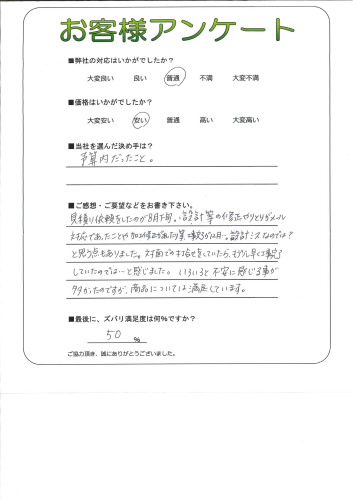 お客様アンケート
■弊社の対応はいかがでしたか？
大変良い 良い 普通 不満 大変不満
■価格はいかがでしたか？
大変安い 安い 普通 高い 大変高い
■当社を選んだ決め手は？
予算内だったこと。
■ご感想・ご要望などをお書き下さい。
見積り依頼をしたのが8月下旬。設計等の修正やりとりがメール
対応であったことや加工修正があったり等、完了が12月…設計ミスなのでは？
と思う点もありました。対面での打合せをしていたら、もう少し早く工事完了
していたのでは…と感じました。いろいろと不安に感じる事が
多かったのですが、商品については満足しています。
■最後に、ズバリ満足度は何%ですか？
50 %
ご協力頂き、誠にありがとうございました。